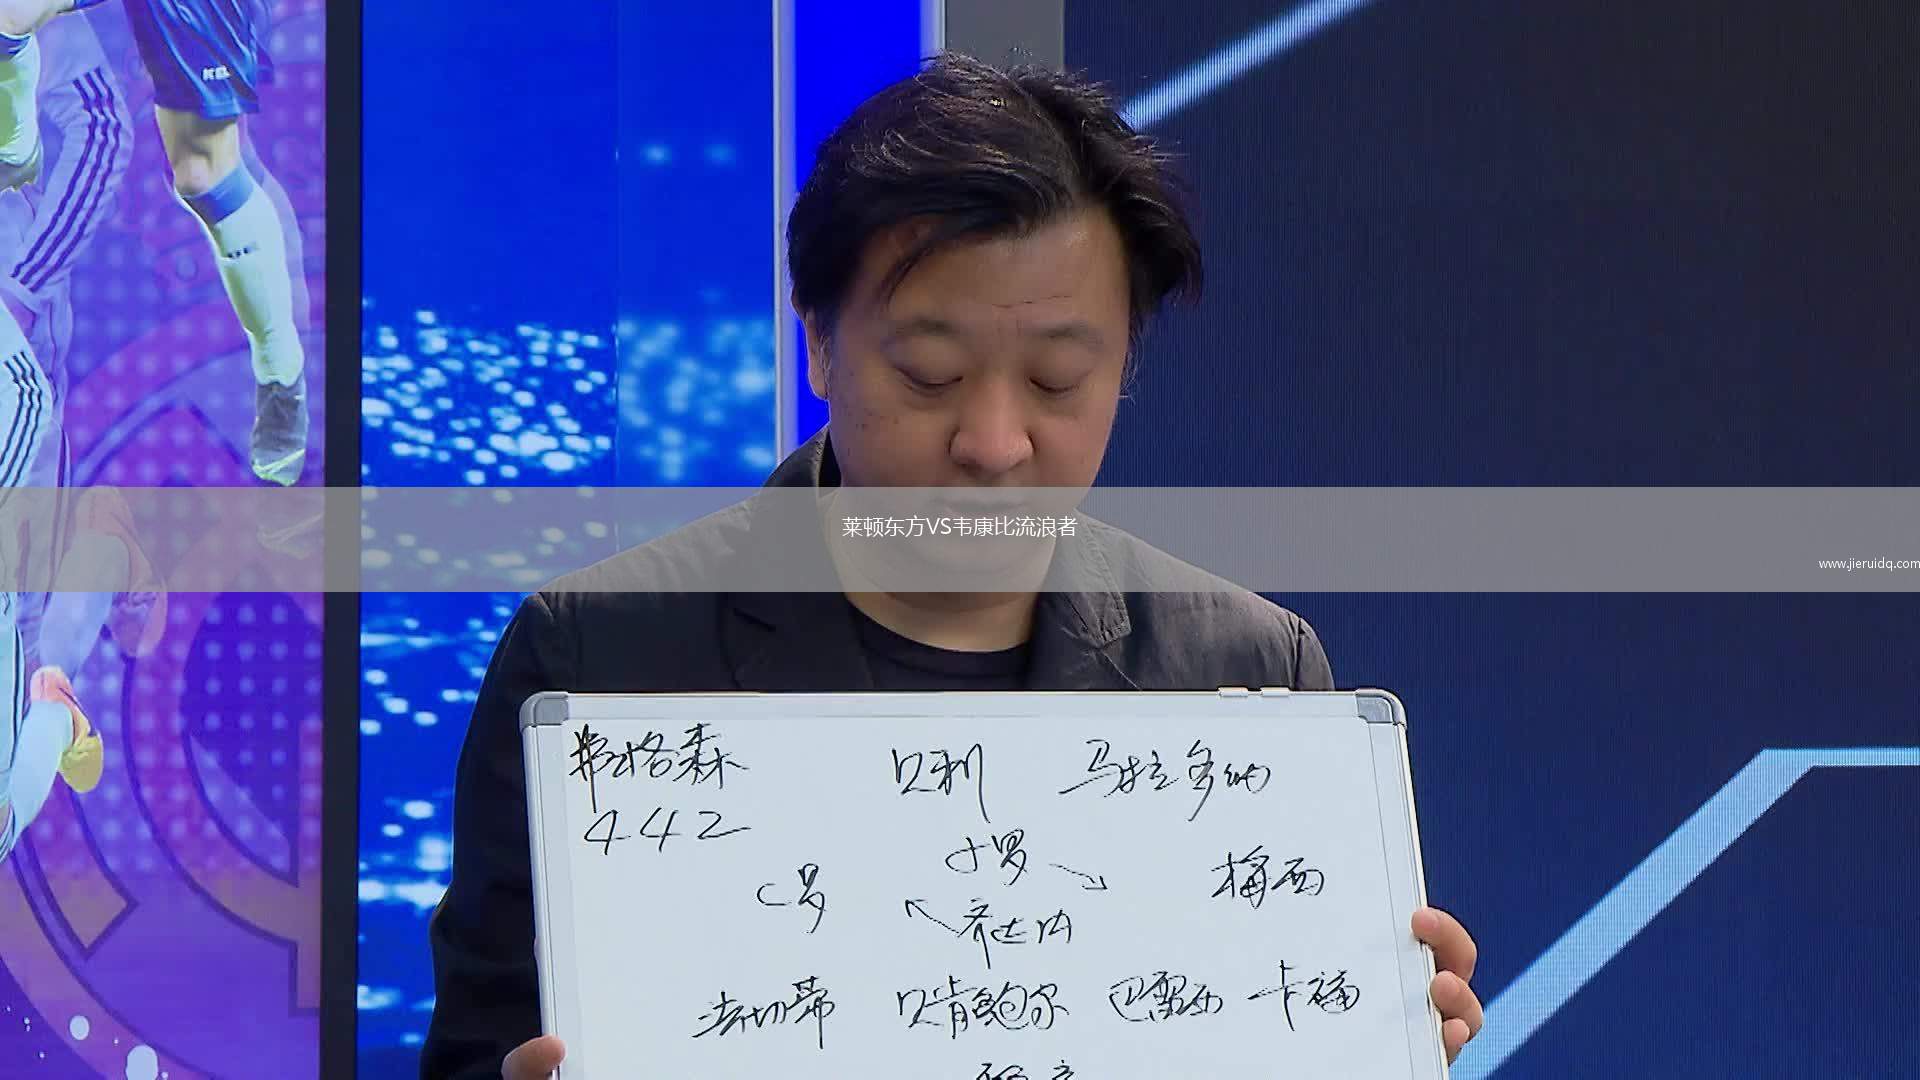 莱顿东方VS韦康比流浪者
www.jieruidq.com
弗格森 贝利 马拉多纳
442
小罗
C罗 梅西
齐达内
法切蒂 贝肯鲍尔 巴雷西 卡福